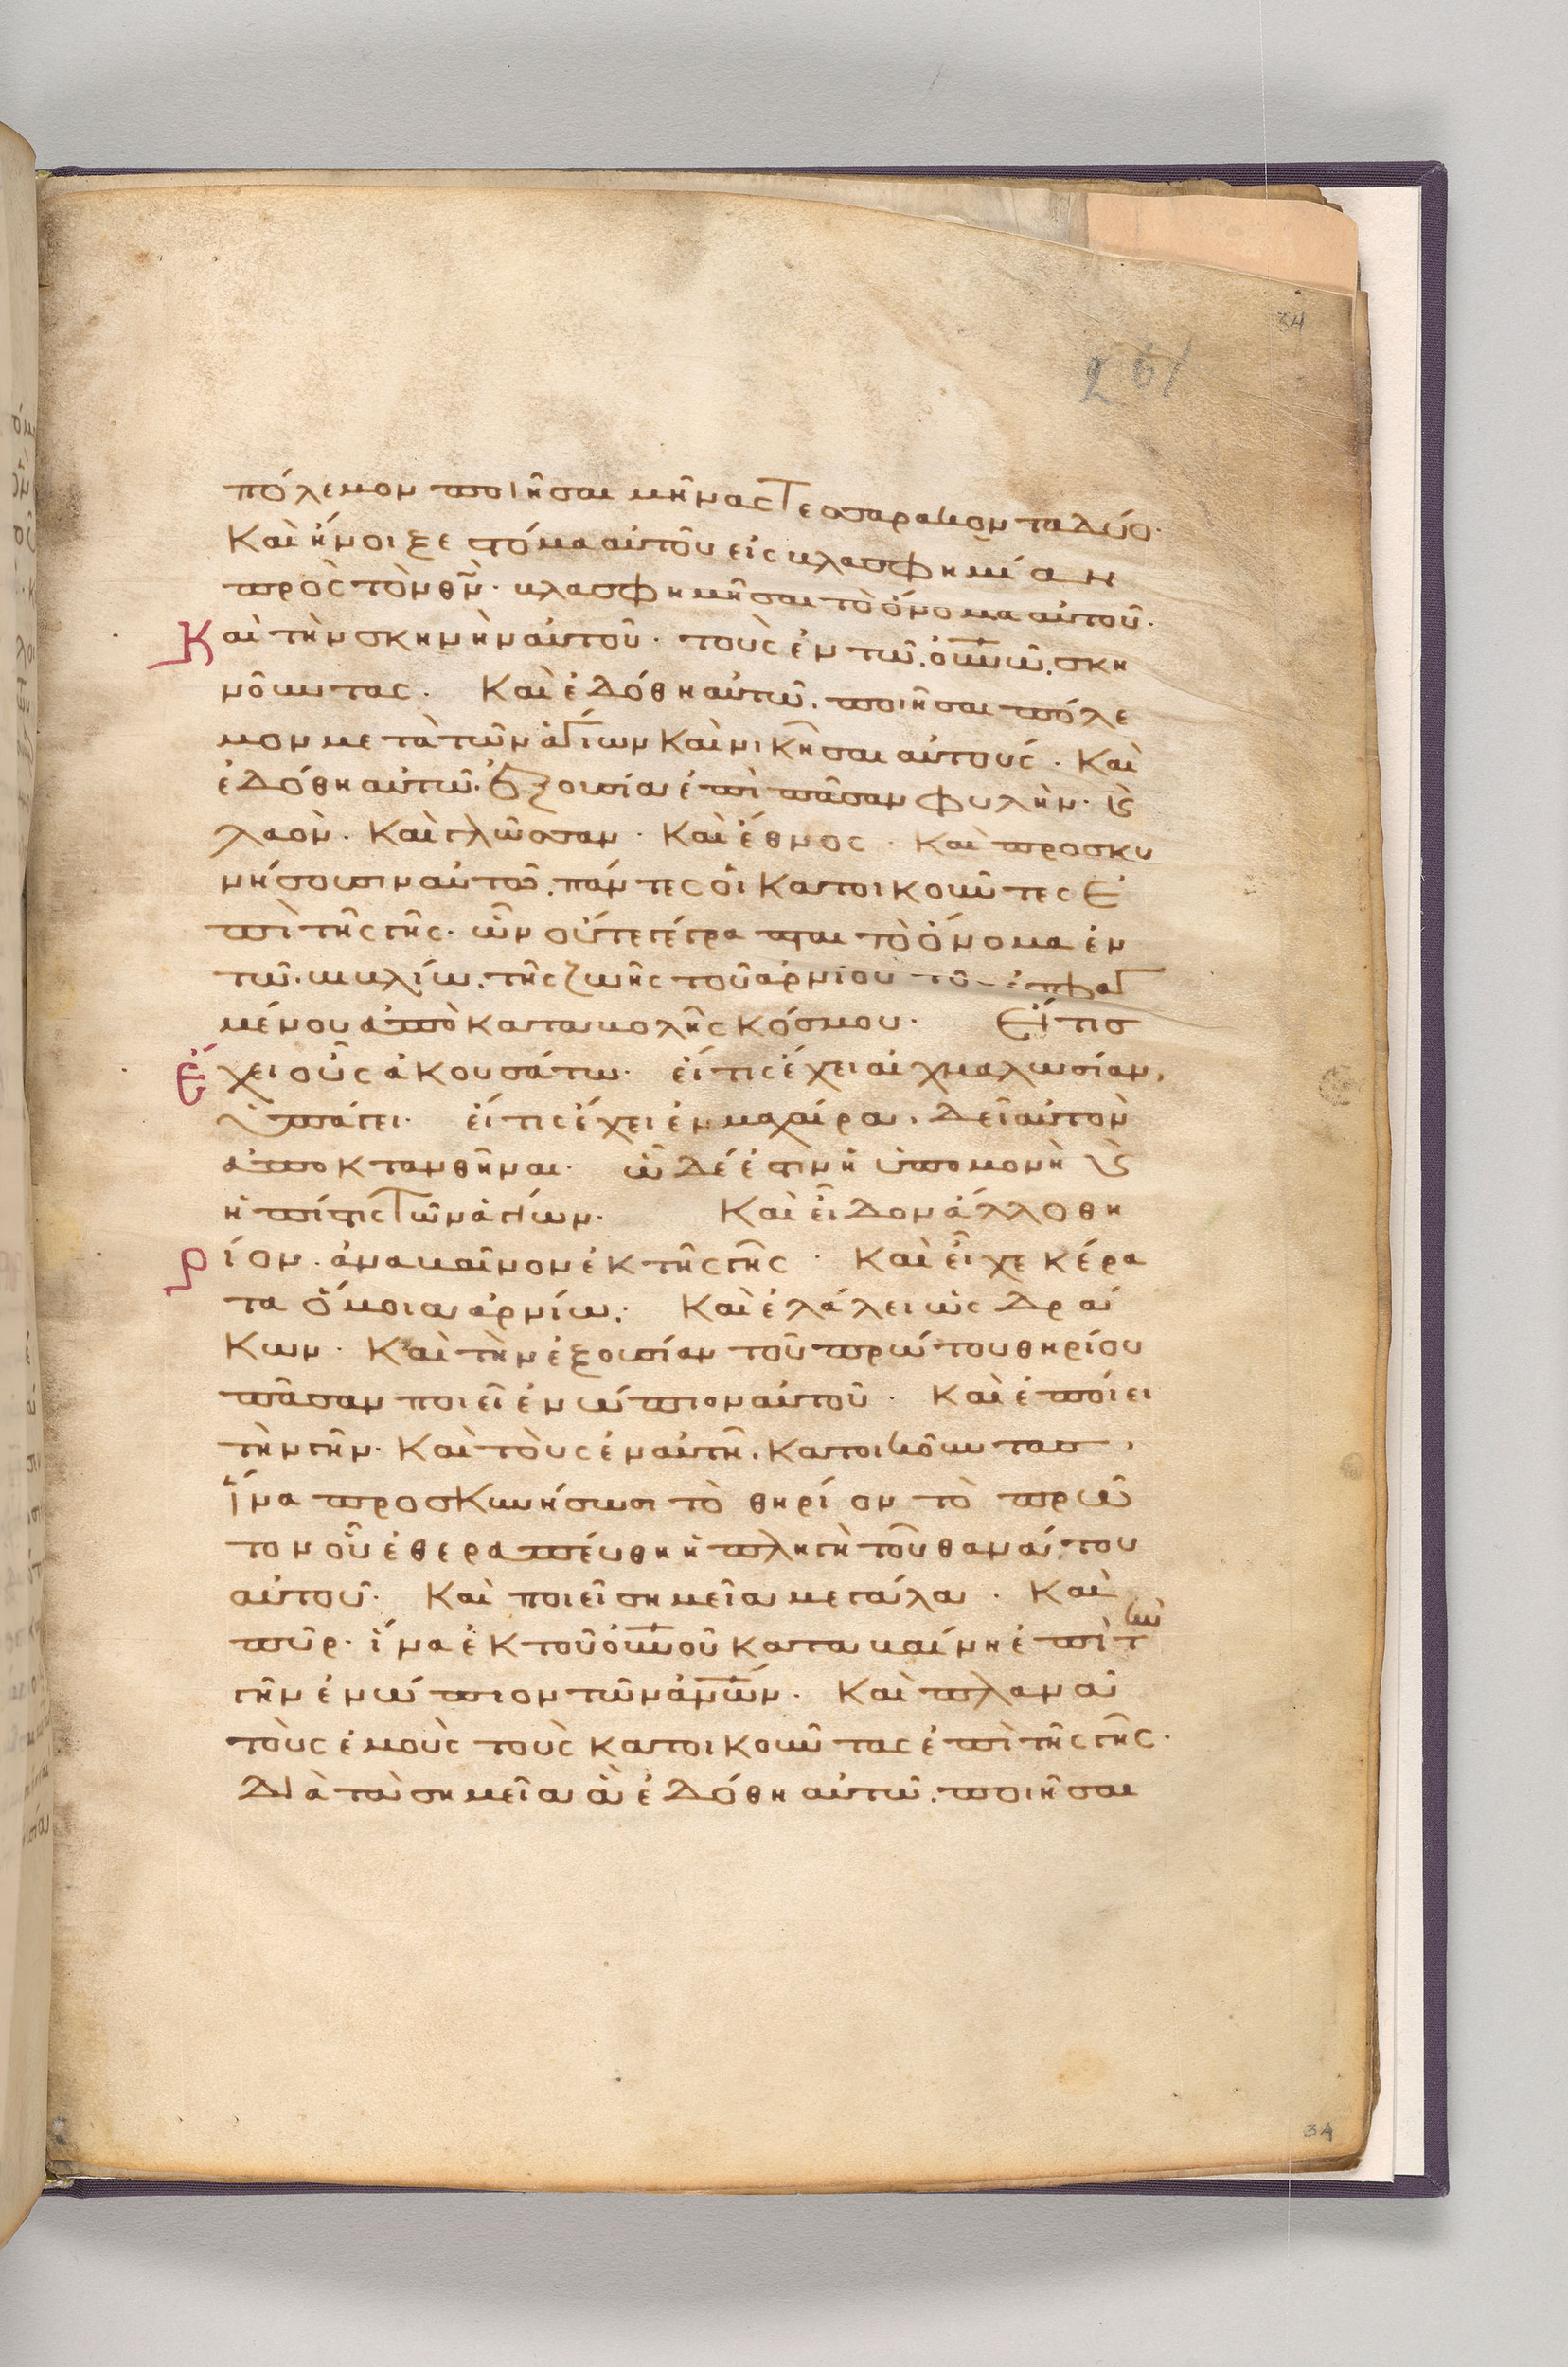 34
261
πόλεμον ποιῆσαι μῆνας τεσσαράκοντα δύο·
Καὶ ἤνοιξε στόμα αὐτοῦ εἰς βλασφημίαν
πρὸς τὸν θν̄· βλασφημῆσαι τὸ ὄνομα αὐτοῦ·
Καὶ τὴν σκηνὴν αὐτοῦ· τοὺς ἐν τῶ οὐνῶ σκη
νοῦντας. Καὶ ἐδόθη αὐτῶ ποιῆσαι πόλε
μον μετὰ τῶν ἁγίων καὶ νικῆσαι αὐτούς· Καὶ
ἐδόθη αὐτῶ ἐξουσία ἐπὶ πᾶσαν φυλὴν· ϗ
λαὸν· Καὶ γλῶσσαν· Καὶ ἔθνος· Καὶ προσκυ
νήσουσιν αὐτῶ πάντες οἱ κατοικοῦντες ἐ
πὶ τῆς γῆς· ὧν οὔτε γέγραπται τὸ ὄνομα ἐν
τῶ βιβλίω τῆς ζωῆς τοῦ ἀρνίου τοῦ ἐσφαγ
μένου ἀπὸ καταβολῆς κόσμου· Εἴ τισ
ἔχει οὖς ἀκουσάτω· εἴ τις ἔχει αἰχμαλωσίαν,
ὑπάγει· εἴ τις ἔχει ἐν μαχαίρα, δεῖ αὐτὸν
ἀποκτανθῆναι· ὧδέ ἐστιν ἡ ὑπομονὴ ϗ
ἡ πίστις τῶν ἁγίων· Καὶ εἶδον ἄλλο θη
ρίον· ἀναβαῖνον ἐκ τῆς γῆς· Καὶ εἶχε κέρα
τα ὅμοια ἀρνίω· Καὶ ἐλάλει ὡς δρά
κων· Καὶ τὴν ἐξουσίαν τοῦ πρώτου θηρίου
πᾶσαν ποιεῖ ἐνώπιον αὐτοῦ· Καὶ ἐποίει
τὴν γῆν· Καὶ τοὺς ἐν αὐτῆ κατοικοῦντασ,
ἵνα προσκυνήσωσι τὸ θηρίον τὸ πρῶ
τον οὗ ἐθεραπεύθη ἡ πληγὴ τοῦ θανάτου
αὐτοῦ· Καὶ ποιεῖ σημεῖα μεγάλα· Καὶ
πῦρ· ἵνα ἐκ τοῦ οὐνοῦ καταβαίνη ἐπὶ τὴν
γῆν ἐνώπιον τῶν ἀνῶν· Καὶ πλανᾶ
τοὺς ἐμοὺς τοὺς κατοικοῦντας ἐπὶ τῆς γῆς·
Διὰ τὰ σημεῖα ἃ ἐδόθη αὐτῶ ποιῆσαι
34